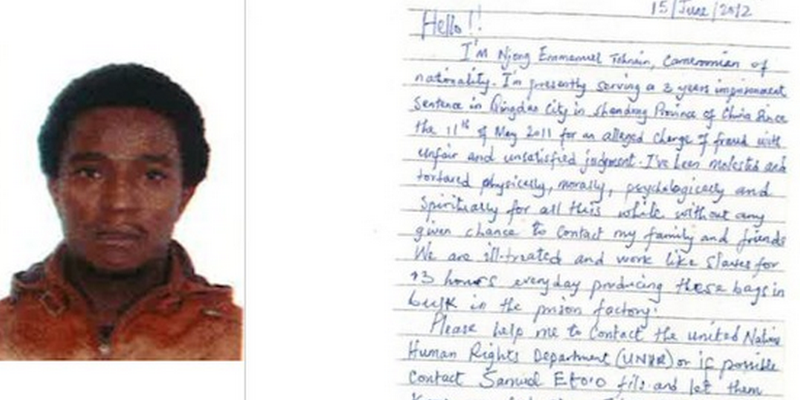 15/June/2012
Hello!!
I'm Njong Emmanuel Tohnain, Cameroonian of
nationality. I'm presently serving a 3 years imprisonment
sentence in Qingdao City in Shandong Province of China Since
the 11th of May 2011 for an alleged charge of fraud with
unfair and unsatisfied judgment. I've been molested and
tortured physically, morally, psychologically and
spiritually for all this while without any
given chance to contact my family and friends
We are ill-treated and work like slaves for
13 hours everyday producing these bags in
bulk in the prison factory.
Please help me to contact the united Nations
Human Rights Department (UNHR) or if possible
contact Samuel Eto'o fils and let them